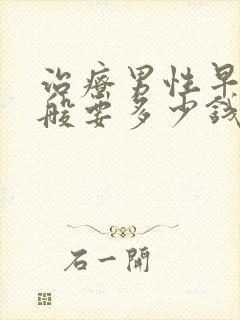 治療男性早
般要多少錢
石一開